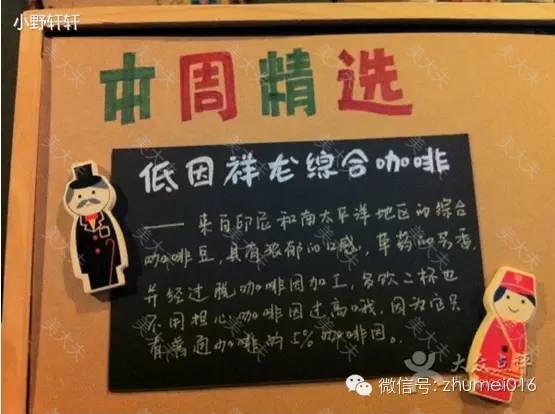 小野轩轩
本周精选
低因祥龙综合咖啡
——来自印尼和南太平洋地区的综合
咖啡豆,具有浓郁的口感,草药的芳香,
并经过脱咖啡因加工,多饮二杯也
不用担心咖啡因过高哦,因为它只
有普通咖啡的5%咖啡因。
大众点评
微信号: zhumei016
美大夫